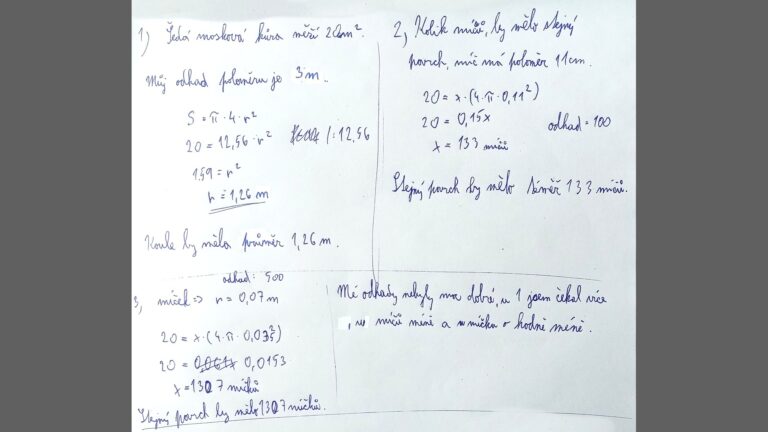 1) Šedá mosková kůra měří 20 m².
Můj odhad poloměru je 3 m.
S = π · 4 · r²
20 = 12,56 · r² /: 12,56
1,59 = r²
r ≐ 1,26 m
Koule by měla průměr 1,26 m.
2) Kolik míčů, by mělo stejný
povrch, míč má poloměr 11 cm.
20 = x · (4 · π · 0,11²)
20 = 0,15x
odhad = 100
x = 133 míčů
Stejný povrch by mělo téměř 133 míčů.
odhad: 500
3, míček => r = 0,07 m
20 = x · (4 · π · 0,035²)
20 = 0,0153
x = 1307 míčků
Stejný povrch by mělo 1307 míčků.
Mé odhady nebyly moc dobré, u 1 jsem čekal více
, u míčů méně a u míčku o hodně méně.